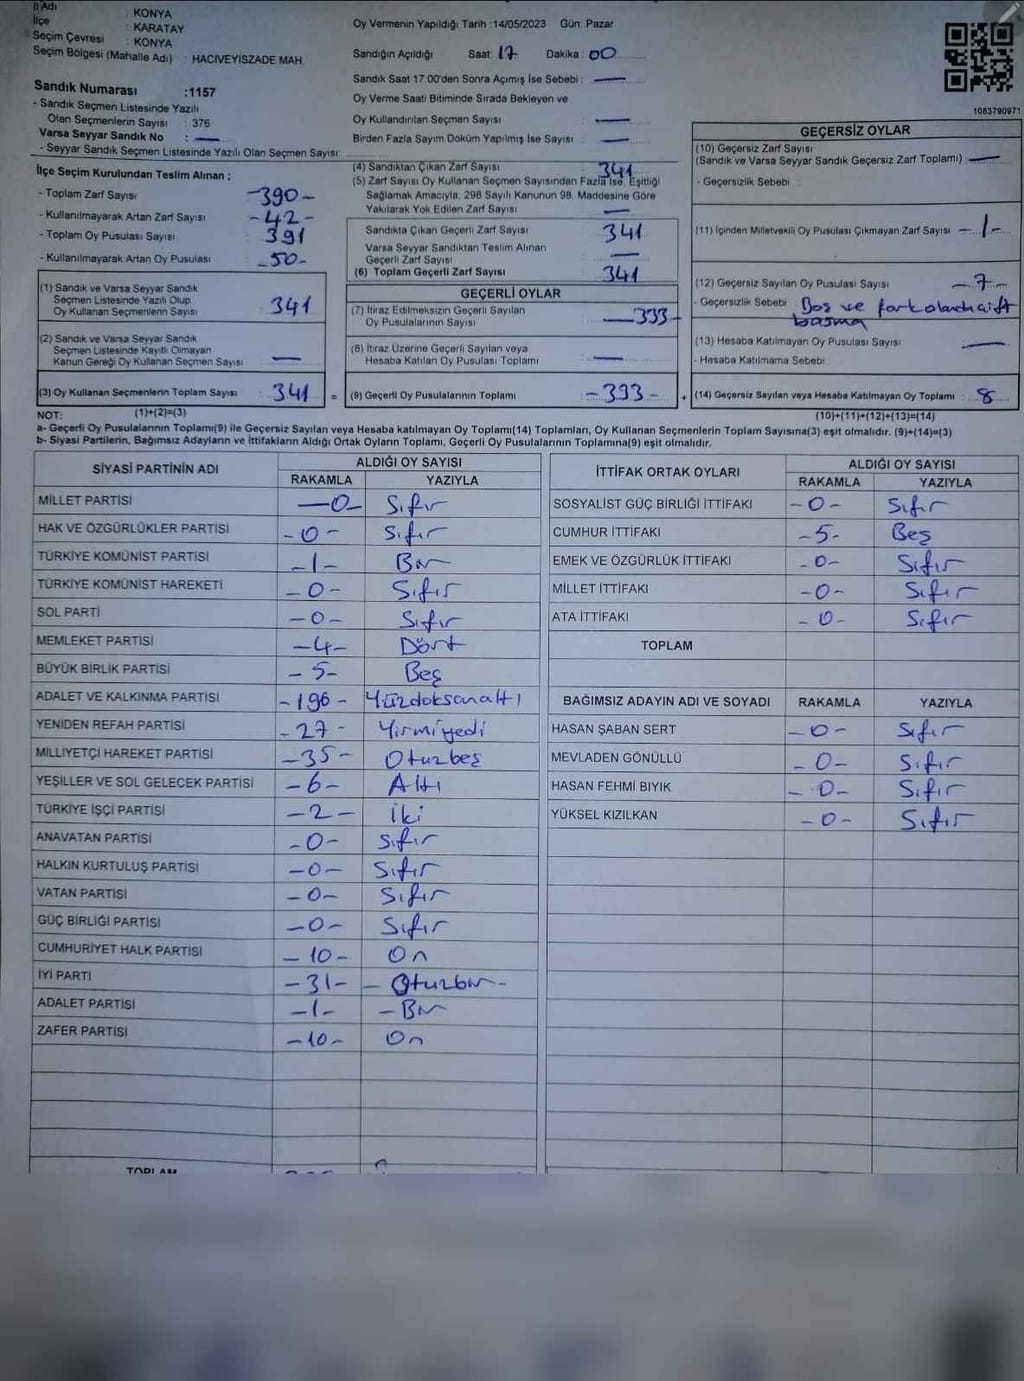 İl Adı : KONYA
İlçe : KARATAY
Seçim Çevresi : KONYA
Seçim Bölgesi (Mahalle Adı) : HACIVEYİSZADE MAH.
Sandık Numarası :1157
- Sandık Seçmen Listesinde Yazılı
Olan Seçmenlerin Sayısı : 376
Varsa Seyyar Sandık No : —
- Seyyar Sandık Seçmen Listesinde Yazılı Olan Seçmen Sayısı:
İlçe Seçim Kurulundan Teslim Alınan ;
- Toplam Zarf Sayısı -390-
- Kullanılmayarak Artan Zarf Sayısı -42-
- Toplam Oy Pusulası Sayısı 391
- Kullanılmayarak Artan Oy Pusulası -50-
(1) Sandık ve Varsa Seyyar Sandık
Seçmen Listesinde Yazılı Olup
Oy Kullanan Seçmenlerin Sayısı 341
(2) Sandık ve Varsa Seyyar Sandık
Seçmen Listesinde Kayıtlı Olmayan
Kanun Gereği Oy Kullanan Seçmen Sayısı —
(3) Oy Kullanan Seçmenlerin Toplam Sayısı 341 =
(1)+(2)=(3)
Oy Vermenin Yapıldığı Tarih :14/05/2023 Gün: Pazar
Sandığın Açıldığı Saat: 17 Dakika: 00
Sandık Saat 17:00'den Sonra Açılmış İse Sebebi : —
Oy Verme Saati Bitiminde Sırada Bekleyen ve
Oy Kullandırılan Seçmen Sayısı —
Birden Fazla Sayım Döküm Yapılmış İse Sayısı —
(4) Sandıktan Çıkan Zarf Sayısı 341
(5) Zarf Sayısı Oy Kullanan Seçmen Sayısından Fazla İse, Eşitliği
Sağlamak Amacıyla, 298 Sayılı Kanunun 98. Maddesine Göre
Yakılarak Yok Edilen Zarf Sayısı —
Sandıkta Çıkan Geçerli Zarf Sayısı 341
Varsa Seyyar Sandıktan Teslim Alınan
Geçerli Zarf Sayısı —
(6) Toplam Geçerli Zarf Sayısı 341
GEÇERLİ OYLAR
(7) İtiraz Edilmeksizin Geçerli Sayılan
Oy Pusulalarının Sayısı —333-
(8) İtiraz Üzerine Geçerli Sayılan veya
Hesaba Katılan Oy Pusulası Toplamı —
(9) Geçerli Oy Pusulalarının Toplamı -333- +
1083790971
GEÇERSİZ OYLAR
(10) Geçersiz Zarf Sayısı
(Sandık ve Varsa Seyyar Sandık Geçersiz Zarf Toplamı) : —
- Geçersizlik Sebebi :
(11) İçinden Milletvekili Oy Pusulası Çıkmayan Zarf Sayısı -1-
(12) Geçersiz Sayılan Oy Pusulası Sayısı -7-
- Geçersizlik Sebebi : Boş ve
basma
(13) Hesaba Katılmayan Oy Pusulası Sayısı —
- Hesaba Katılmama Sebebi :
(14) Geçersiz Sayılan veya Hesaba Katılmayan Oy Toplamı : 8
(10)+(11)+(12)+(13)=(14)
NOT:
a- Geçerli Oy Pusulalarının Toplamı(9) ile Geçersiz Sayılan veya Hesaba katılmayan Oy Toplamı(14) Toplamları, Oy Kullanan Seçmenlerin Toplam Sayısına(3) eşit olmalıdır. (9)+(14)=(3)
b- Siyasi Partilerin, Bağımsız Adayların ve İttifakların Aldığı Ortak Oyların Toplamı, Geçerli Oy Pusulalarının Toplamına(9) eşit olmalıdır.
SİYASİ PARTİNİN ADI ALDIĞI OY SAYISI
RAKAMLA YAZIYLA
MİLLET PARTİSİ —0- Sıfır
HAK VE ÖZGÜRLÜKLER PARTİSİ -0- Sıfır
TÜRKİYE KOMÜNİST PARTİSİ -1- Bir
TÜRKİYE KOMÜNİST HAREKETİ -0- Sıfır
SOL PARTİ -0- Sıfır
MEMLEKET PARTİSİ -4- Dört
BÜYÜK BİRLİK PARTİSİ -5- Beş
ADALET VE KALKINMA PARTİSİ -196- Yüzdoksanaltı
YENİDEN REFAH PARTİSİ -27- Yirmiyedi
MİLLİYETÇİ HAREKET PARTİSİ -35- Oturbeş
YEŞİLLER VE SOL GELECEK PARTİSİ -6- Altı
TÜRKİYE İŞÇİ PARTİSİ -2- İki
ANAVATAN PARTİSİ -0- Sıfır
HALKIN KURTULUŞ PARTİSİ -0- Sıfır
VATAN PARTİSİ -0- Sıfır
GÜÇ BİRLİĞİ PARTİSİ -0- Sıfır
CUMHURİYET HALK PARTİSİ -10- On
İYİ PARTİ -31- - Oturbir-
ADALET PARTİSİ -1- -Bir
ZAFER PARTİSİ -10- On
TOPLAM
İTTİFAK ORTAK OYLARI ALDIĞI OY SAYISI
RAKAMLA YAZIYLA
SOSYALİST GÜÇ BİRLİĞİ İTTİFAKI -0- Sıfır
CUMHUR İTTİFAKI -5- Beş
EMEK VE ÖZGÜRLÜK İTTİFAKI -0- Sıfır
MİLLET İTTİFAKI -0- Sıfır
ATA İTTİFAKI -0- Sıfır
TOPLAM
BAĞIMSIZ ADAYIN ADI VE SOYADI RAKAMLA YAZIYLA
HASAN ŞABAN SERT -0- Sıfır
MEVLADEN GÖNÜLLÜ -0- Sıfır
HASAN FEHMİ BIYIK -0- Sıfır
YÜKSEL KIZILKAN -0- Sıfır